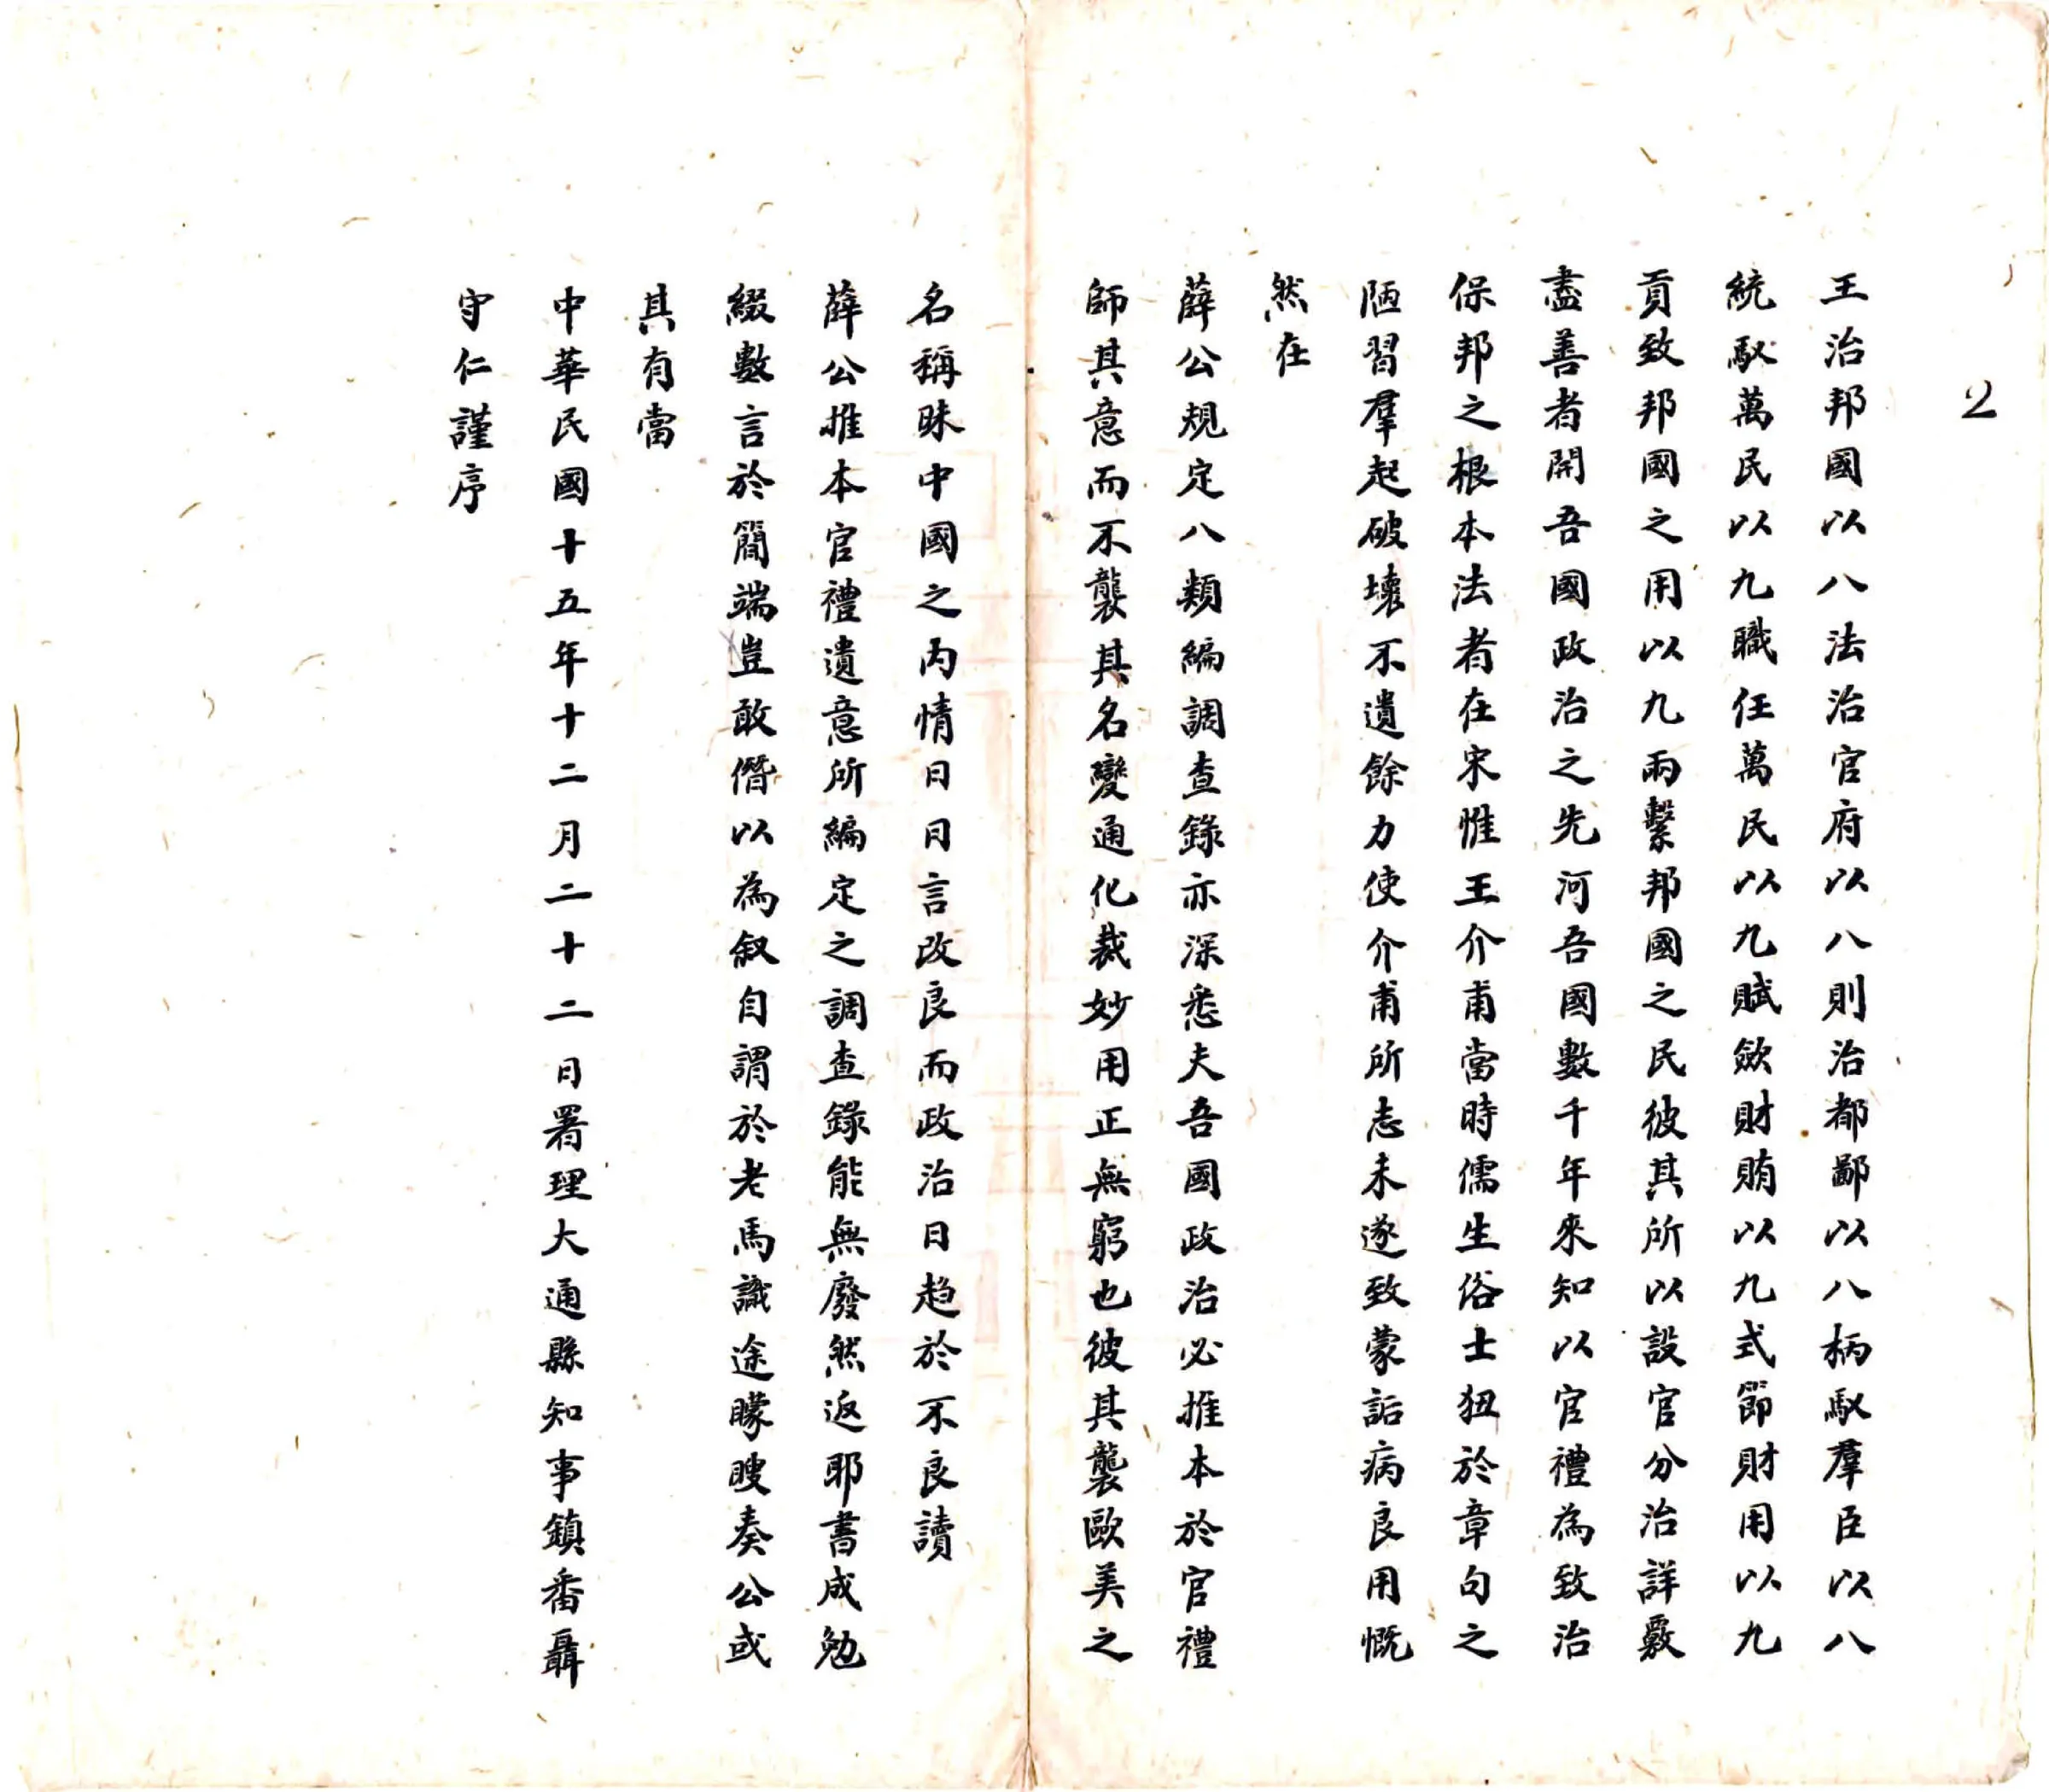 2
王治邦國以八法治官府以八則治都鄙以八柄馭羣臣以八
統馭萬民以九職任萬民以九賦歛財賄以九式節財用以九
貢致邦國之用以九兩繫邦國之民彼其所以設官分治詳覈
盡善者開吾國政治之先河吾國數千年來知以官禮為致治
保邦之根本法者在宋惟王介甫當時儒生俗士狃於章句之
陋習羣起破壞不遺餘力使介甫所志未遂致蒙詬病良用慨
然在
薛公規定八類編調查錄亦深悉夫吾國政治必推本於官禮
師其意而不襲其名變通化裁妙用正無窮也彼其襲歐美之
名稱昧中國之內情日日言改良而政治日趋於不良讀
薛公推本官禮遺意所編定之調查錄能無廢然返耶書成勉
綴數言於簡端豈敢僭以為叙自謂於老馬識途矇瞍奏公或
其有當
中華民國十五年十二月二十二日署理大通縣知事鎮番聶
守仁謹序